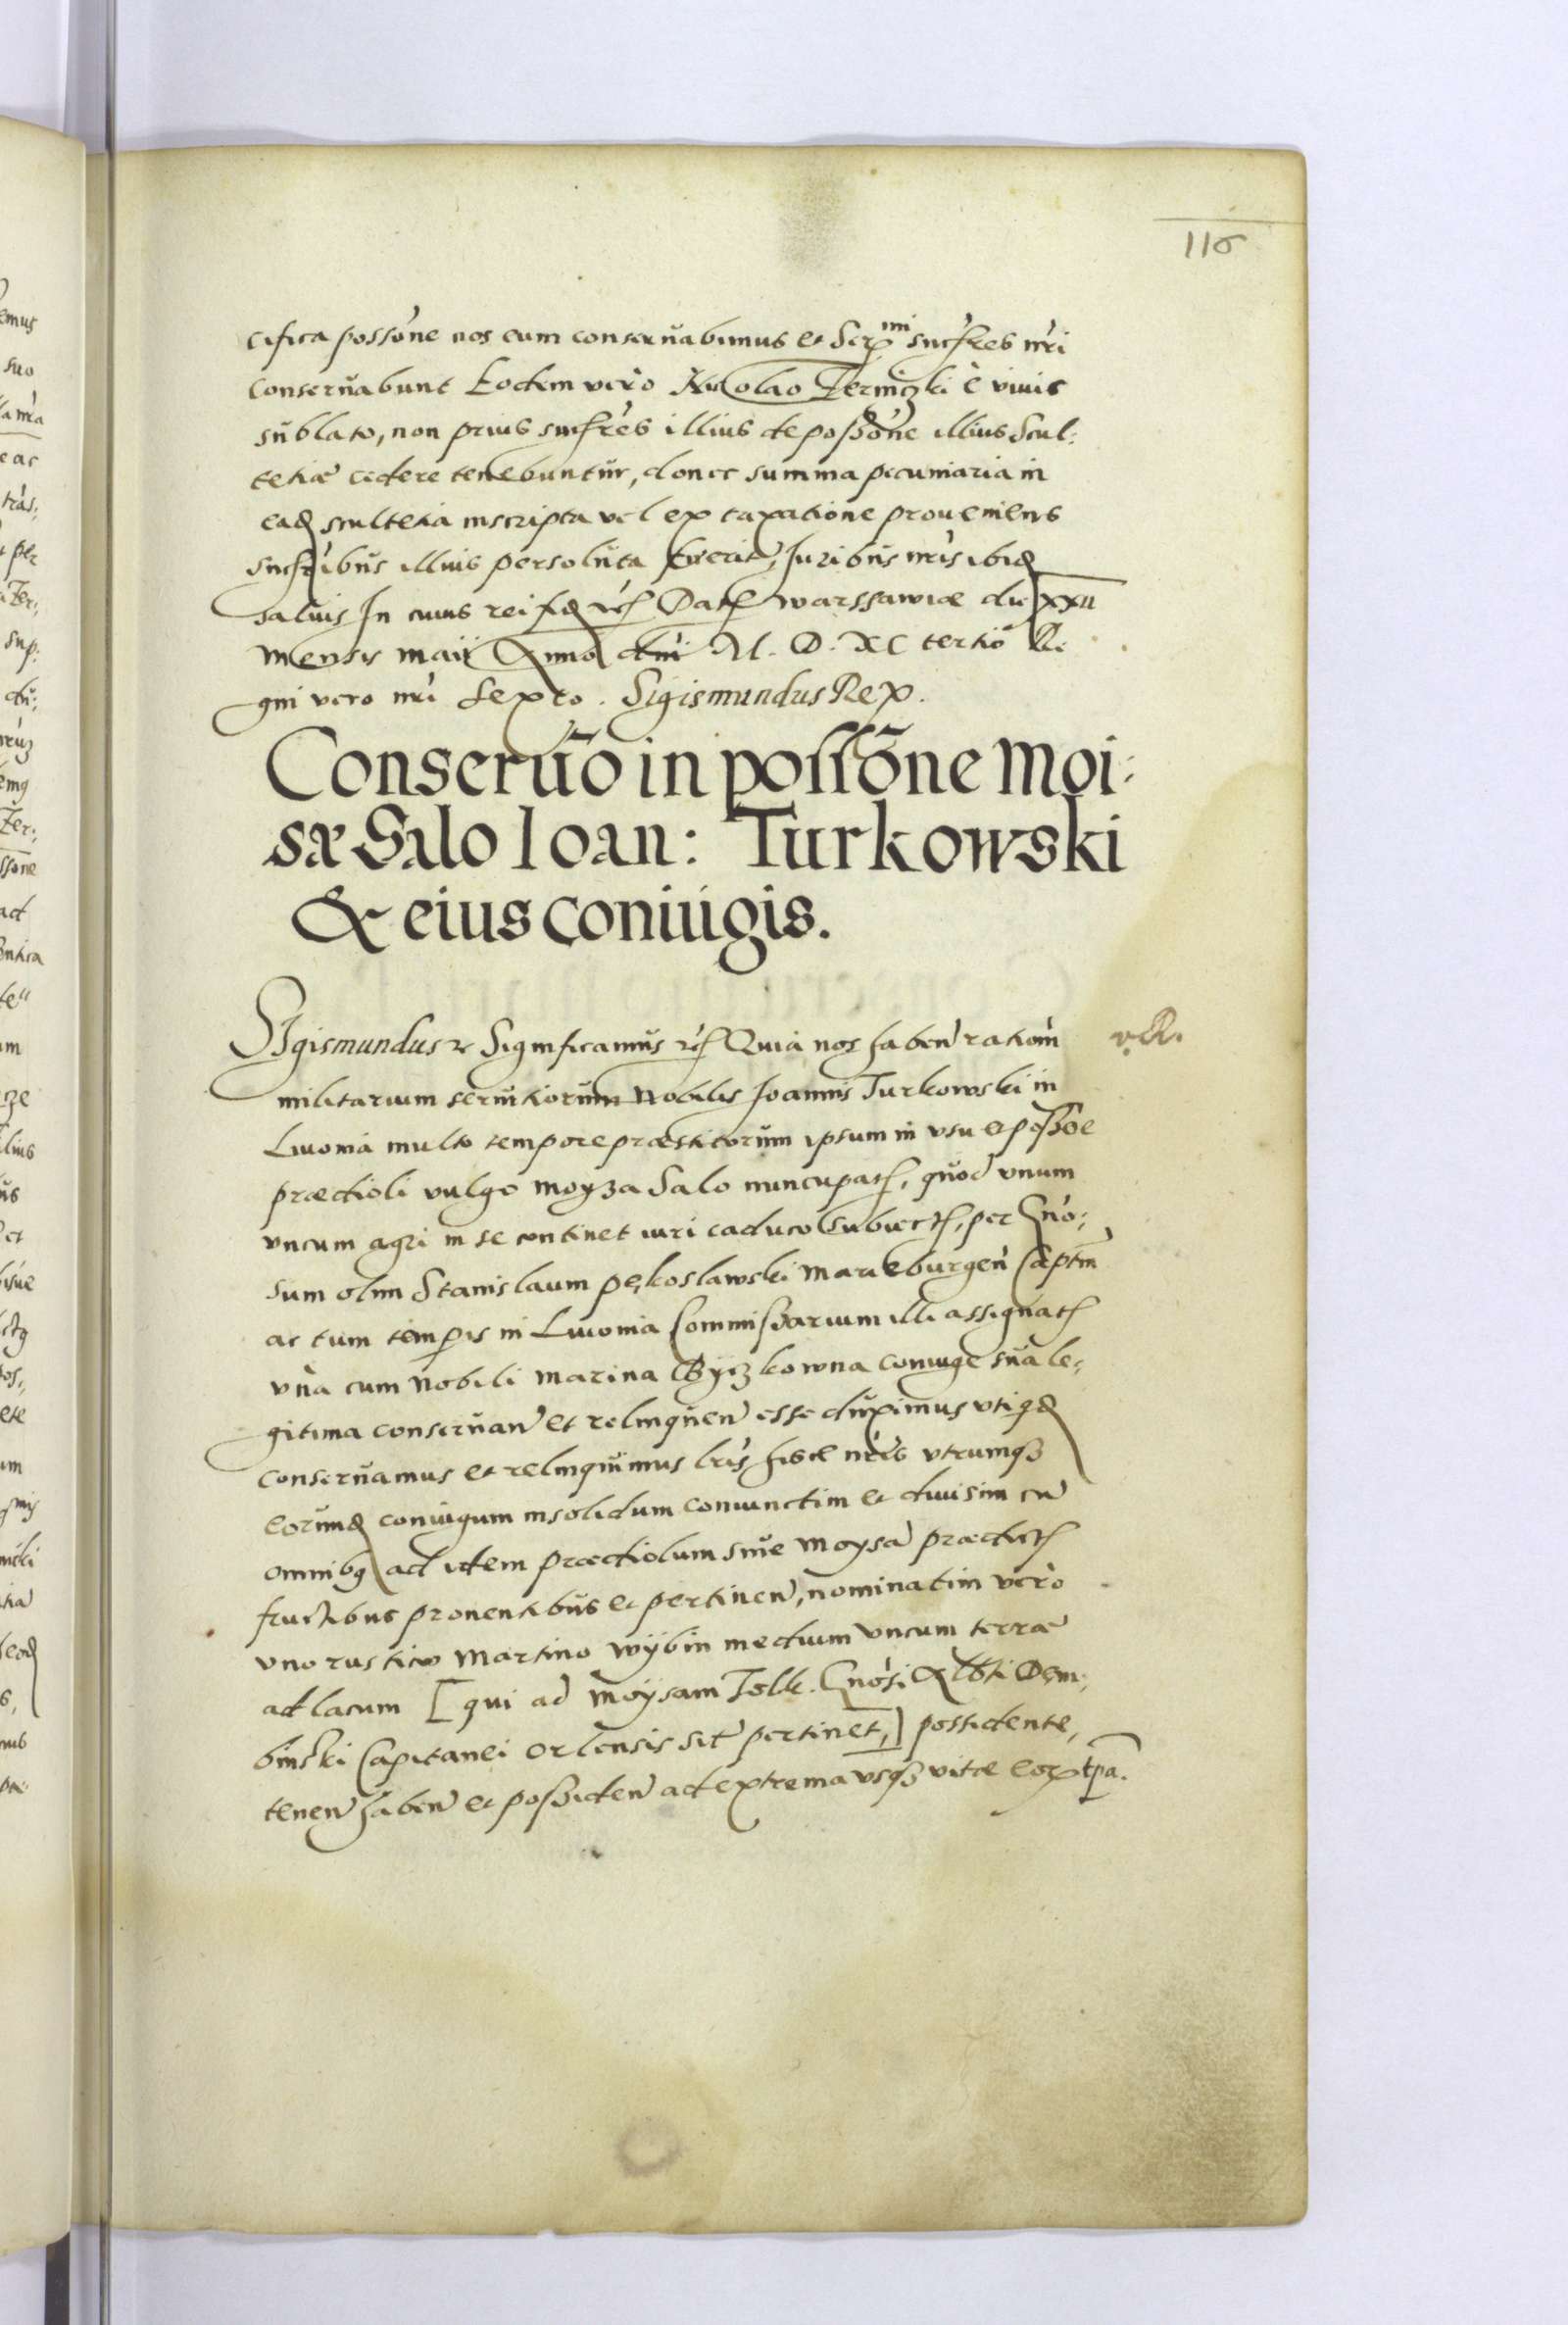 116
cifica possõne nos eum conseruabimus et Ser mi succres nri
conseruabunt Eodem vero Nicolao Zerniczki è viuis
sublato, non prius succres illius de possone illius Scul:
tetiæ cedere tenebuntur, donec summa pecuniaria in
ead scultetia inscripta vel ex taxatione proueniens
succribus illius persoluta fuerit, Iuribus nris ibid
saluis In cuius rei fid Dat warssawiæ die XXII
mensis maii Anno dni M. D. XC tertio Re
gni vero nri Sexto. Sigismundus Rex.
Conseruõ in possõne Moi:
sæ Salo Ioan: Turkowski
& eius coniugis.
Sigismundus Significamus Quia nos haben rationem
v.R.
militarium seruitiorum Nobilis Ioannis Turkowski in
Liuonia multo tempore præstitorum ipsum in vsu et possõe
prædioli vulgo moyza Salo nuncupat, quod vnum
vncum agri in se continet iuri caduco subiect, per Gnõ:
sum olim Stanislaum pękoslawski Marieburgen Captm
ac tum temp is in Liuonia Commissarium illi assignat
vna cum Nobili Marina Byczkowna coniuge sua le:
gitima conseruan et relinquen esse duximus vtiqd
conseruamus et relinquimus lris hisce nris vtrumq
eorund coniugum insolidum coniunctim et diuisim cu
omnibq ad idem prædiolum siue Moysa prædict
fructibus prouentibus et pertinen, nominatim vero
vno rustico Martino Wybin medium vncum terræ
ad lacum [qui ad Moysam Tolk. Gnõsi Albti Dęm:
binski Capitanei Orlensis sit pertinet,] possidente,
tenen haben et possiden ad extrema vsq vitæ eor tpa.